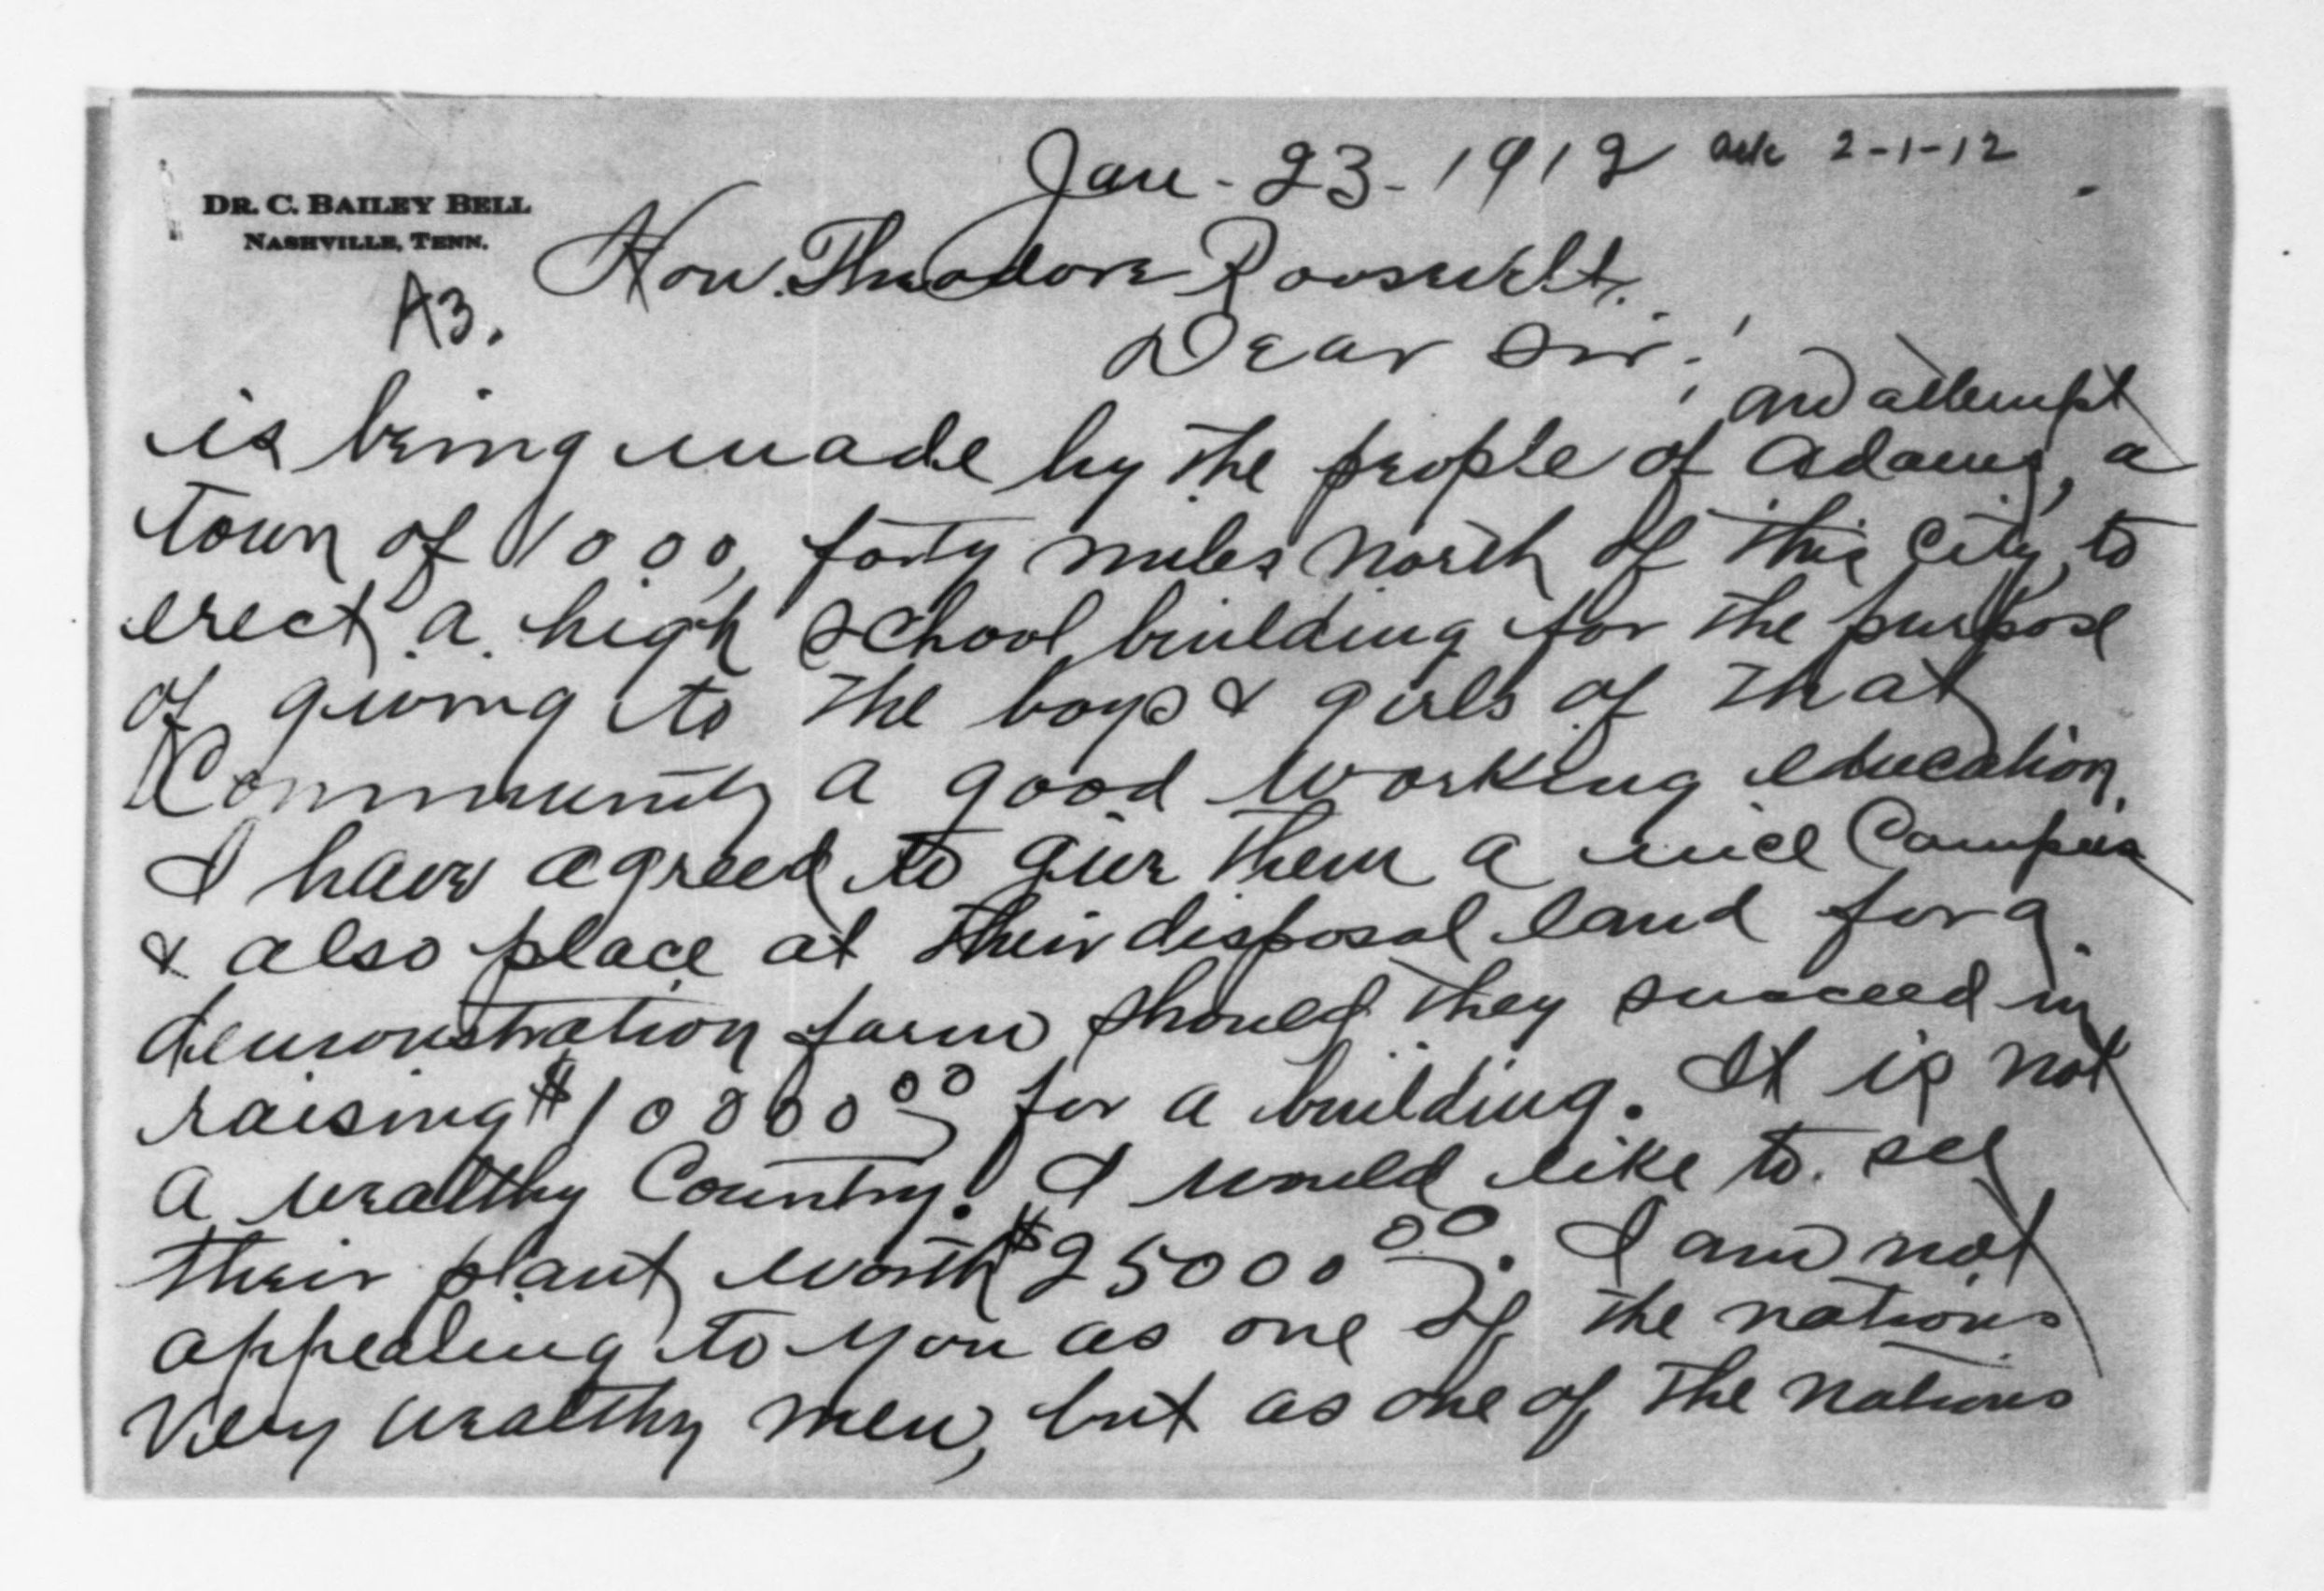 Jan - 23 - 1912 Ack 2-1-12
DR. C. BAILEY BELL
NASHVILLE, TENN.
A3.
Hon. Theodore Roosevelt.
Dear Sir:
and attempt
is being made by the people of Adams, a
town of 1000, forty miles north of this city, to
erect a high school building for the purpose
of giving to the boys & girls of that
Community a good working education.
I have agreed to give them a nice Campus
& also place at their disposal land for a
demonstration farm should they succeed in
raising $10000 00 for a building. It is not
a wealthy Country. I would like to see
their plant worth $25000 00. I am not
appealing to you as one of the nations
very wealthy men, but as one of the nations